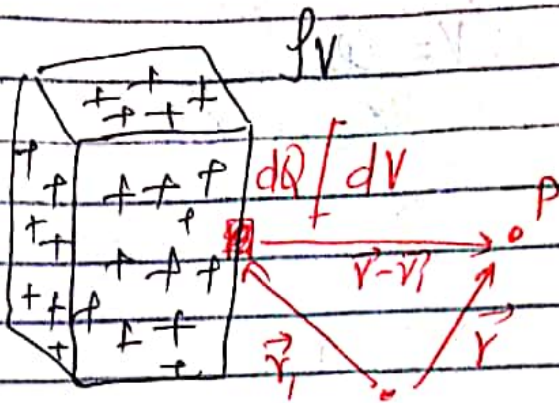 ρv
dQ / dV
P
r⃗-r⃗₁
r⃗₁
r⃗